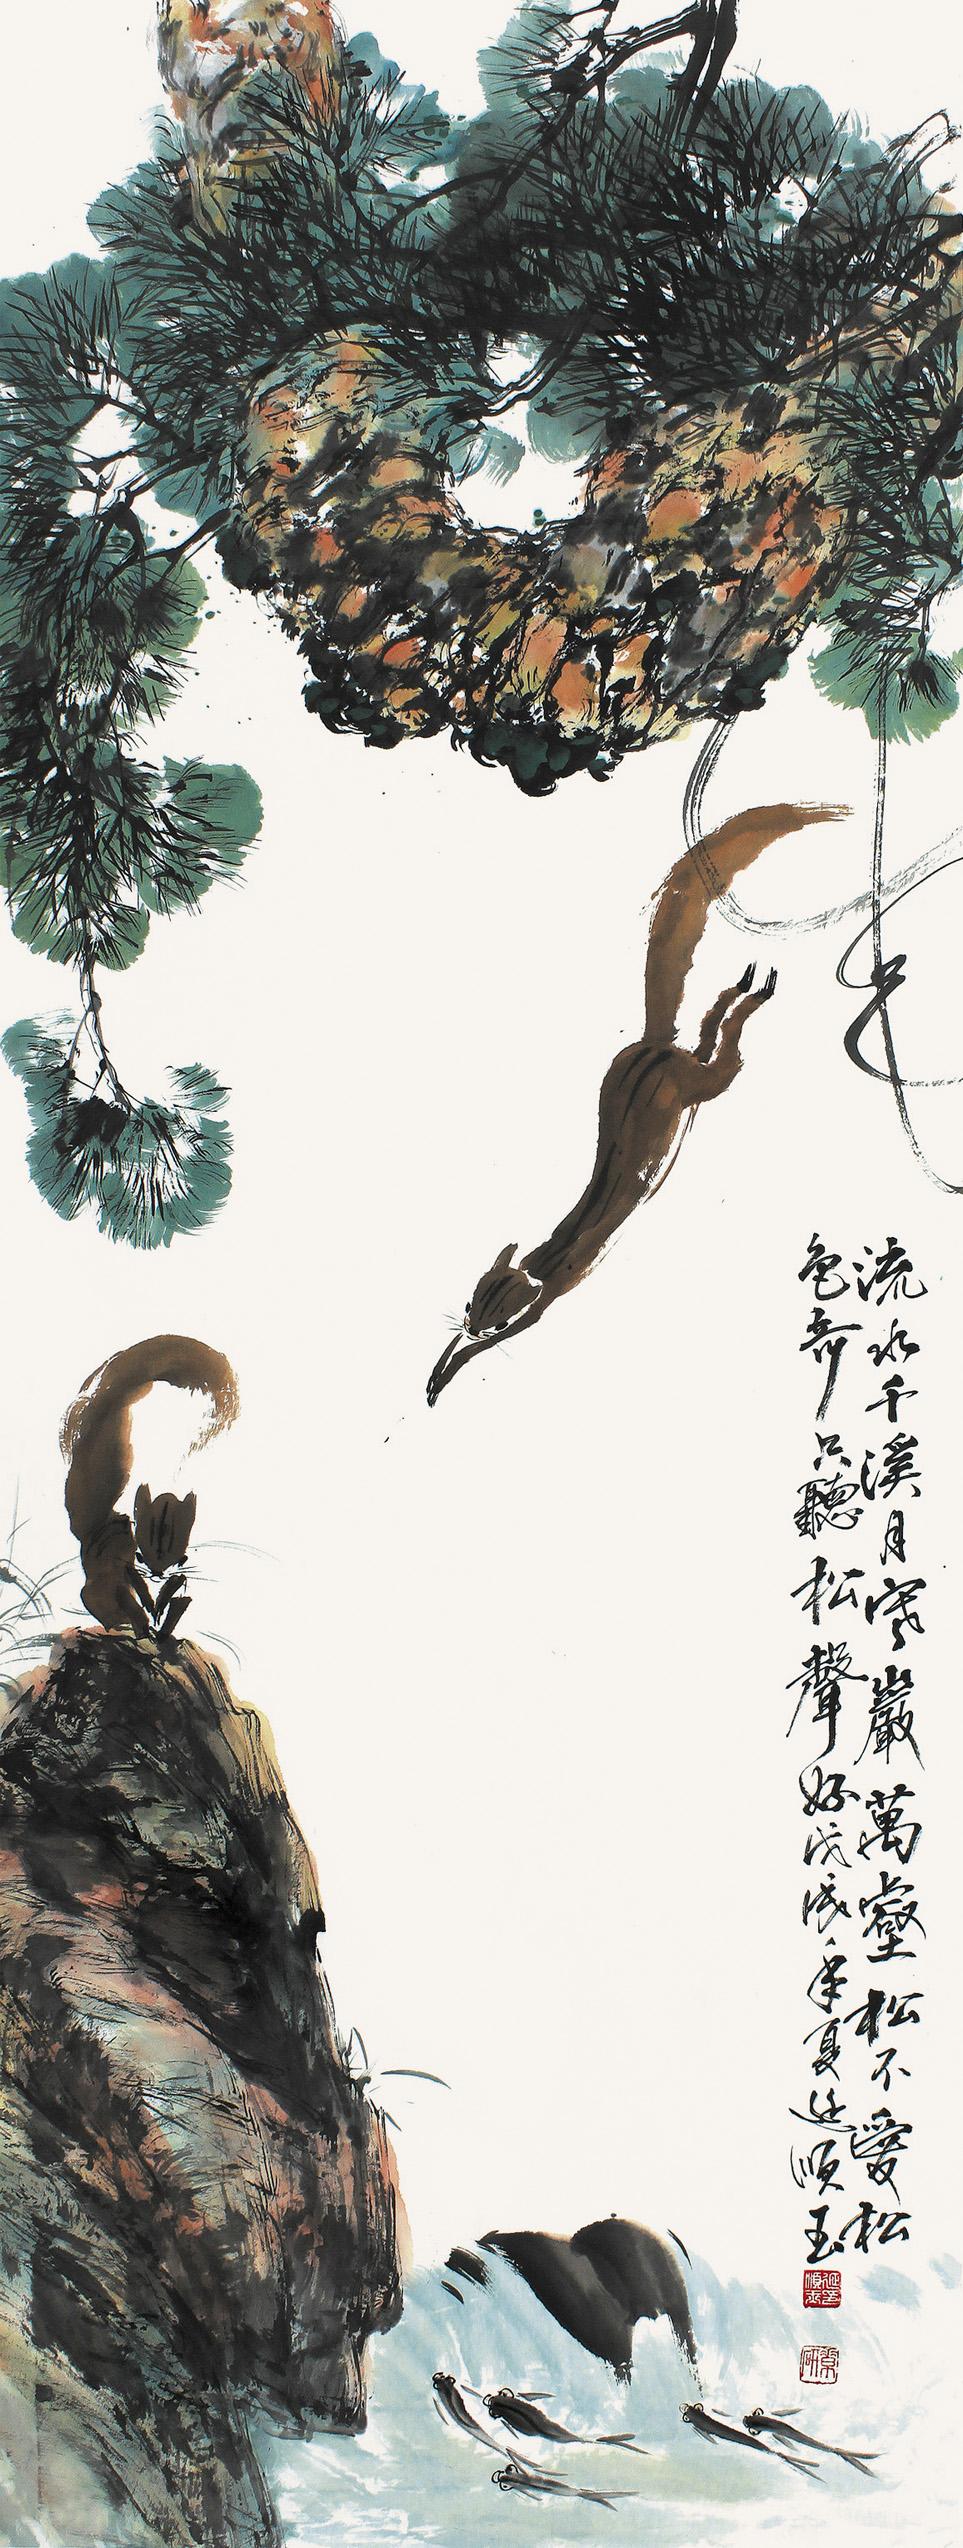 流水千溪月寒巖萬壑松不愛松
色奇只聽松聲好戊辰年夏延順玉